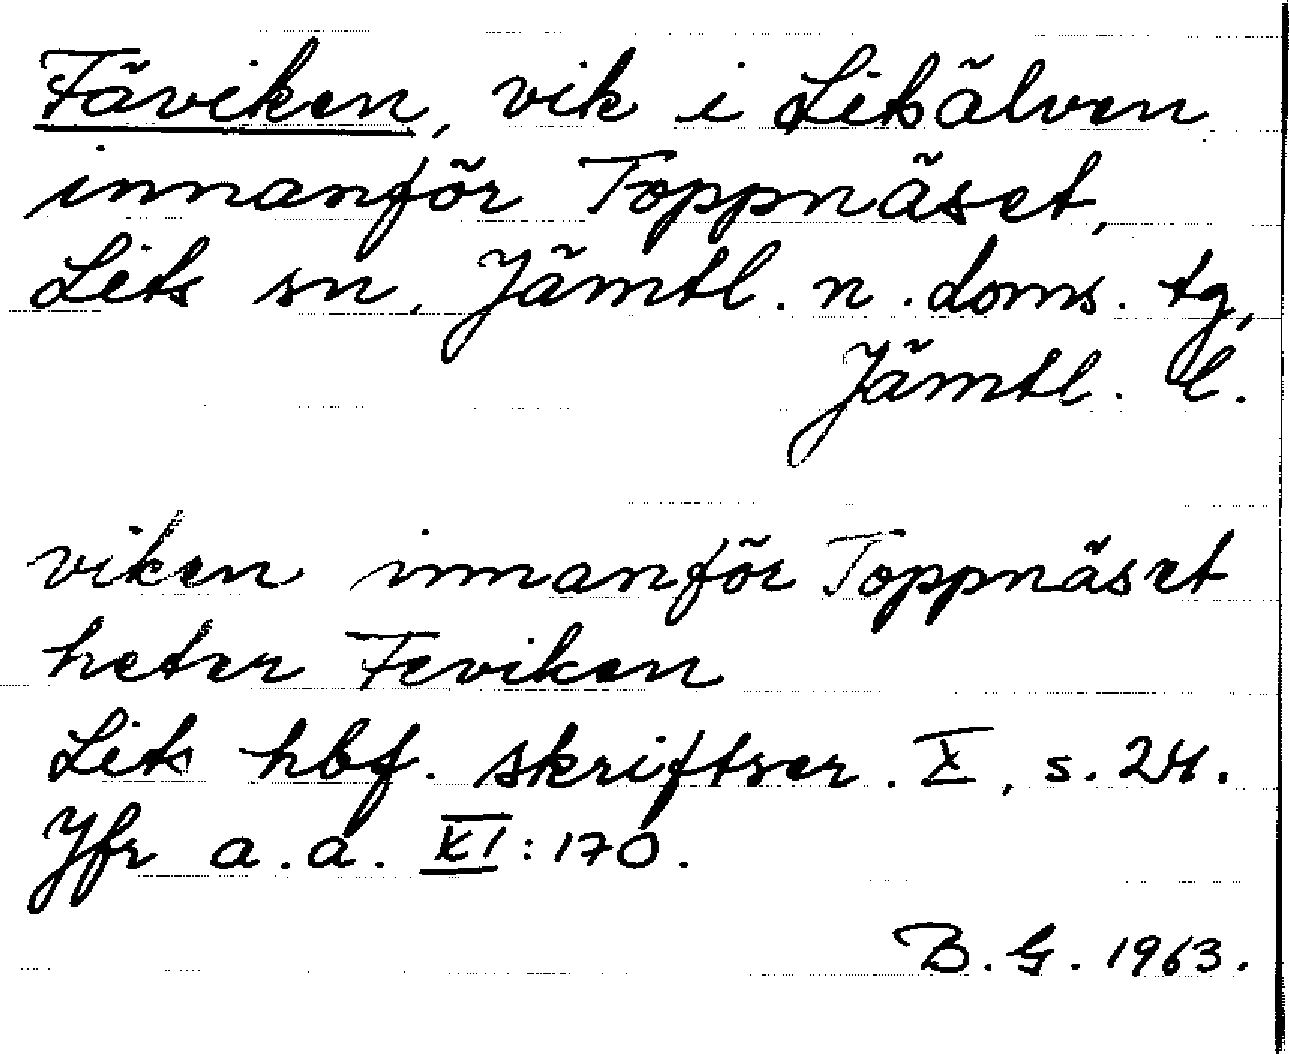 Fäviken, vik i Litsälven
innanför Toppnäset,
Lits sn, Jämtl. n. doms. tg,
Jämtl. l.
viken innanför Toppnäset
heter Feviken
Lits hbf. skriftser. X, s. 24.
Jfr a.a. XI: 170.
B. G. 1963.